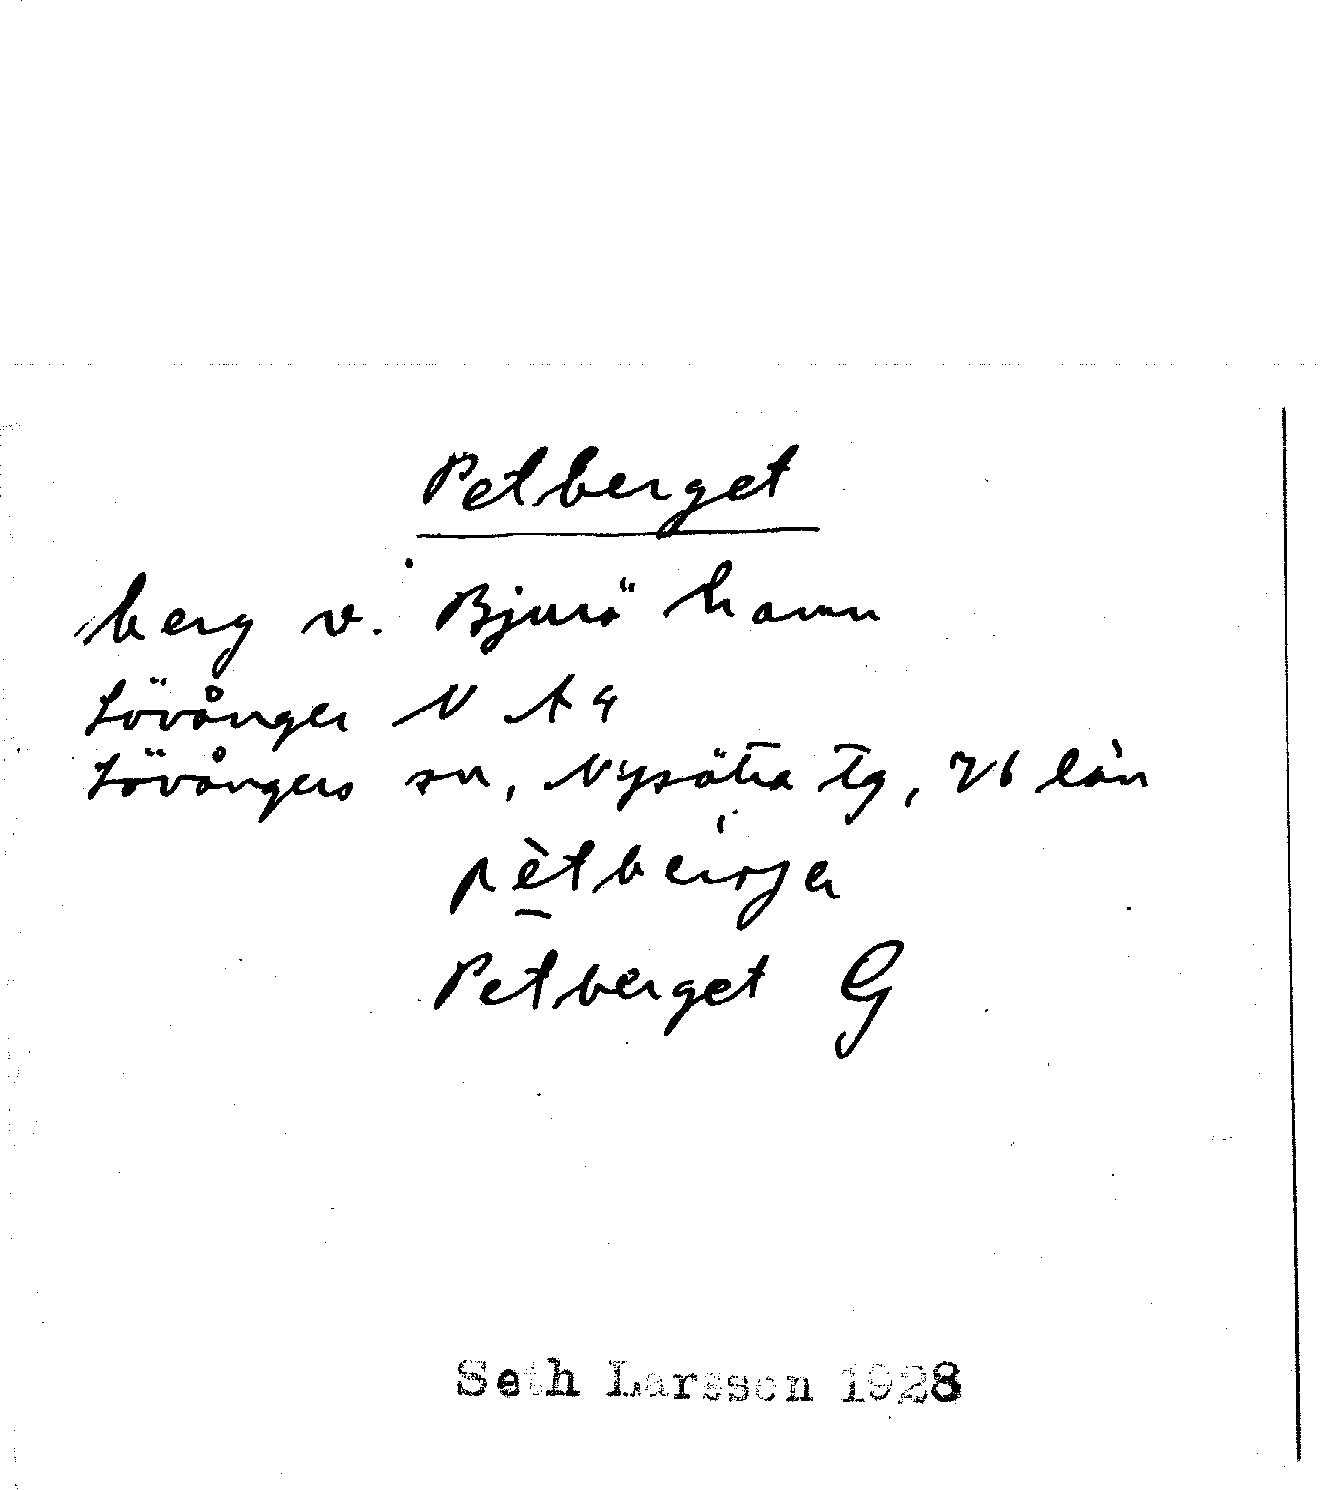 Petberget
berg v. Bjurö hamn
Lövånger N A 4
Lövångers sn, Nysätra tg, Vb län
pètbèrga
Petberget G
Seth Larsson 1928